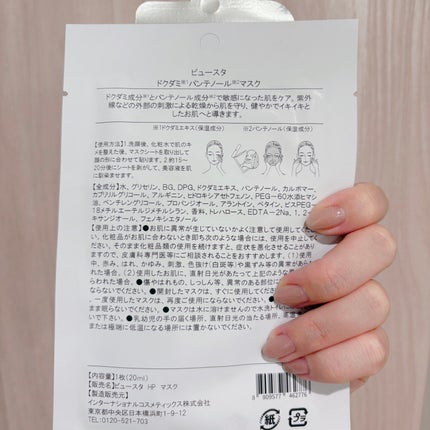 ビュースタ
ドクダミ※1パンテノール※2マスク
ドクダミ成分※1とパンテノール成分※2で敏感になった肌をケア。紫外
線などの外部の刺激による乾燥から肌を守り、健やかでイキイキと
したお肌へと導きます。
※1ドクダミエキス(保湿成分) ※2パンテノール(保湿成分)
【使用方法】1:洗顔後、化粧水で肌のキ
メを整えた後、マスクシートを取り出して
顔の形に合わせて貼ります。2:約15~
20分後にシートを剥がして、美容液を肌
に馴染ませます。
【全成分】水、グリセリン、BG、DPG、ドクダミエキス、パンテノール、カルボマー、
カプリリルグリコール、アルギニン、ヒドロキシアセトフェノン、PEG-60水添ヒマシ
油、ペンチレングリコール、プロパンジオール、アラントイン、ベタイン、ビスPEG-
18メチルエーテルジメチルシラン、香料、トレハロース、EDTA-2Na、1,2-
キサンジオール、フェノキシエタノール
【使用上の注意】●お肌に異常が生じていないかよく注意して使用してくだ
い。化粧品がお肌に合わないとき即ち次のような場合には、使用を中止し
さい。そのまま化粧品類の使用を続けますと、症状を悪化させることがあり
すので、皮膚科専門医等にご相談されることをおすすめします。(1)使用
中、赤み、はれ、かゆみ、刺激、色抜け(白斑等)や黒ずみ等の異常があ
れた場合。(2)使用したお肌に、直射日光があたって上記のような
らわれた場合。●傷やはれもの、しっしん等、異常のある部位に
ならないでください。●開封したマスクは、すぐに使用してください
。一度使用したマスクは、再度ご使用にならないでください。
まま眠らないでください。●マスクは水に溶けませんので水洗トイ
いで下さい。●乳幼児の手の届く場所、直射日光の当たる場所、
または極端に低温になる場所には置かないでください。
内容量】1枚(20ml)
【販売名】ビュースタ HP マスク
【製造販売元】
インターナショナルコスメティックス株式会社
東京都中央区日本橋浜町1-9-12
TEL:0120-521-703
8 809577 462776
紙
プラ